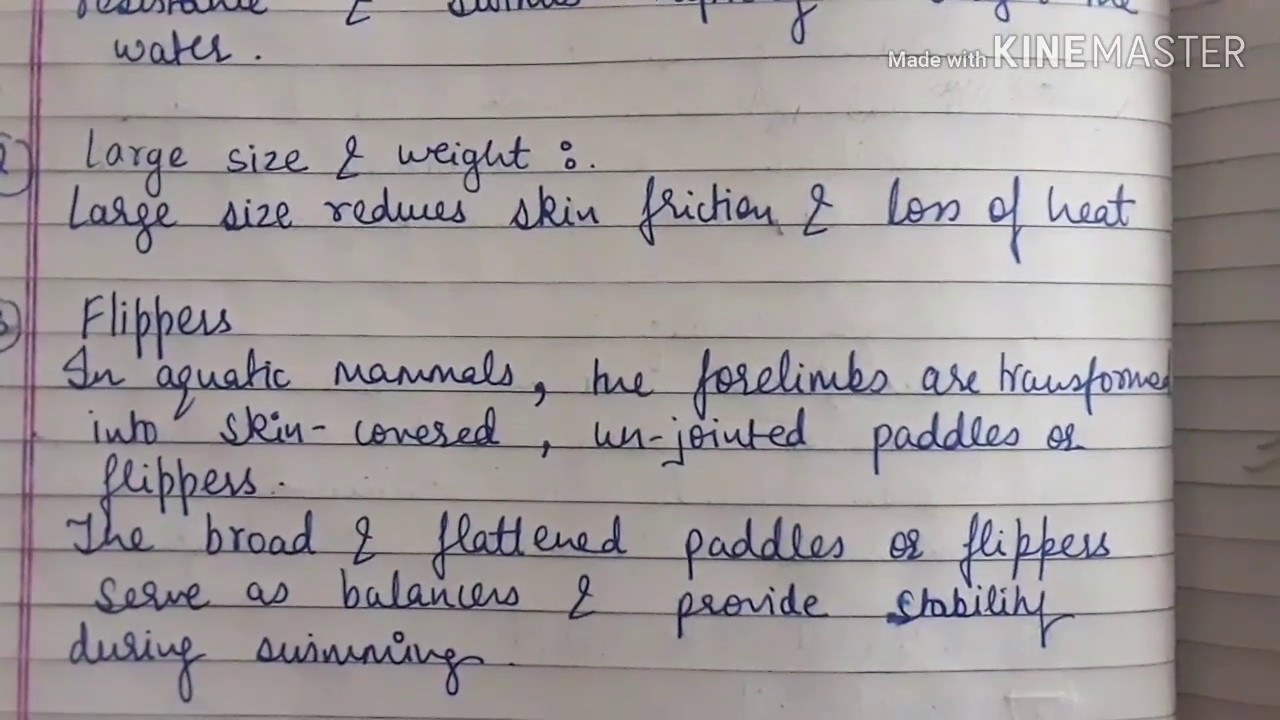 resistance &
water.
Made with KINEMASTER
Large size & weight :.
Large size reduces skin friction & loss of heat
Flippers
In aquatic mammals, the forelimbs are transformed
into skin-covered, un-jointed paddles or
flippers.
The broad & flattened paddles or flippers
serve as balancers & provide stability
during swimming.